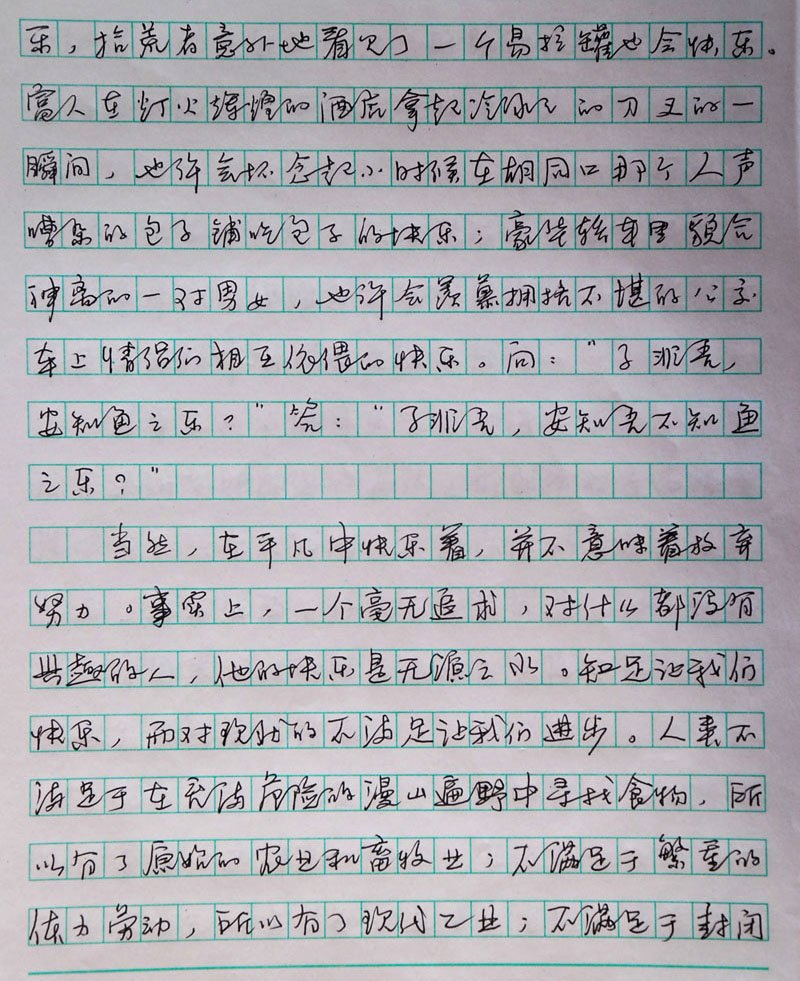 乐，拾荒者意外地看见了一个易拉罐也会快乐。
富人在灯火辉煌的酒店拿起冷冰冰的刀叉的一
瞬间，也许会怀念起小时候在胡同口那个人声
嘈杂的包子铺吃包子的快乐；豪华轿车里貌合
神离的一对男女，也许会羡慕拥挤不堪的公交
车上情侣们相互依偎的快乐。问：“子非鱼，
安知鱼之乐？”答：“子非吾，安知吾不知鱼
之乐？”
当然，在平凡中快乐着，并不意味着放弃
努力。事实上，一个毫无追求，对什么都没有
兴趣的人，他的快乐是无源之水。知足让我们
快乐，而对现状的不满足让我们进步。人类不
满足于在充满危险的漫山遍野中寻找食物，所
以有了原始的农业和畜牧业；不满足于繁重的
体力劳动，所以有了现代工业；不满足于封闭